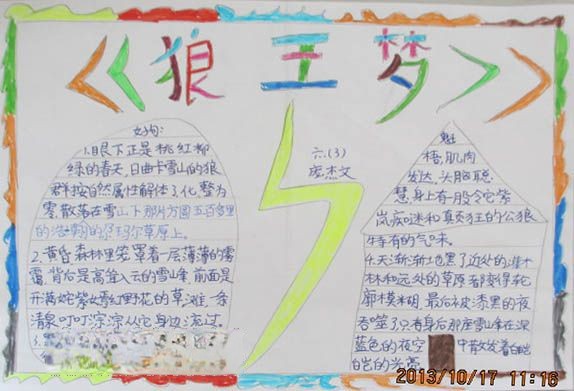 《《狼王梦》》
好句:
1.眼下正是桃红柳
绿的春天,日曲卡雪山的狼
群按自然属性解体了,化整为
零,散落在雪山下那片方圆五百多里
的浩瀚的尕玛尔草原上。
2.黄昏,森林里笼罩着一层薄薄的雾
霭,背后是高耸入云的雪山峰,前面是
开满姹紫嫣红野花的草滩,一条
清泉叮叮淙淙从它身边流过。
3.
六.(3)
杰文
魁
梧,肌肉
发达,头脑聪
慧,身上有股令它紫
岚痴迷和真疯狂的公狼
特有的气味。
4.天渐渐地黑了近处的灌木
林和远处的草原都变得轮
廓模糊,最后被漆黑的夜
吞噬了,只有身后那座雪山拿在深
蓝色的夜空中散发着白皑
皑的光亮
2013/10/17 11:16